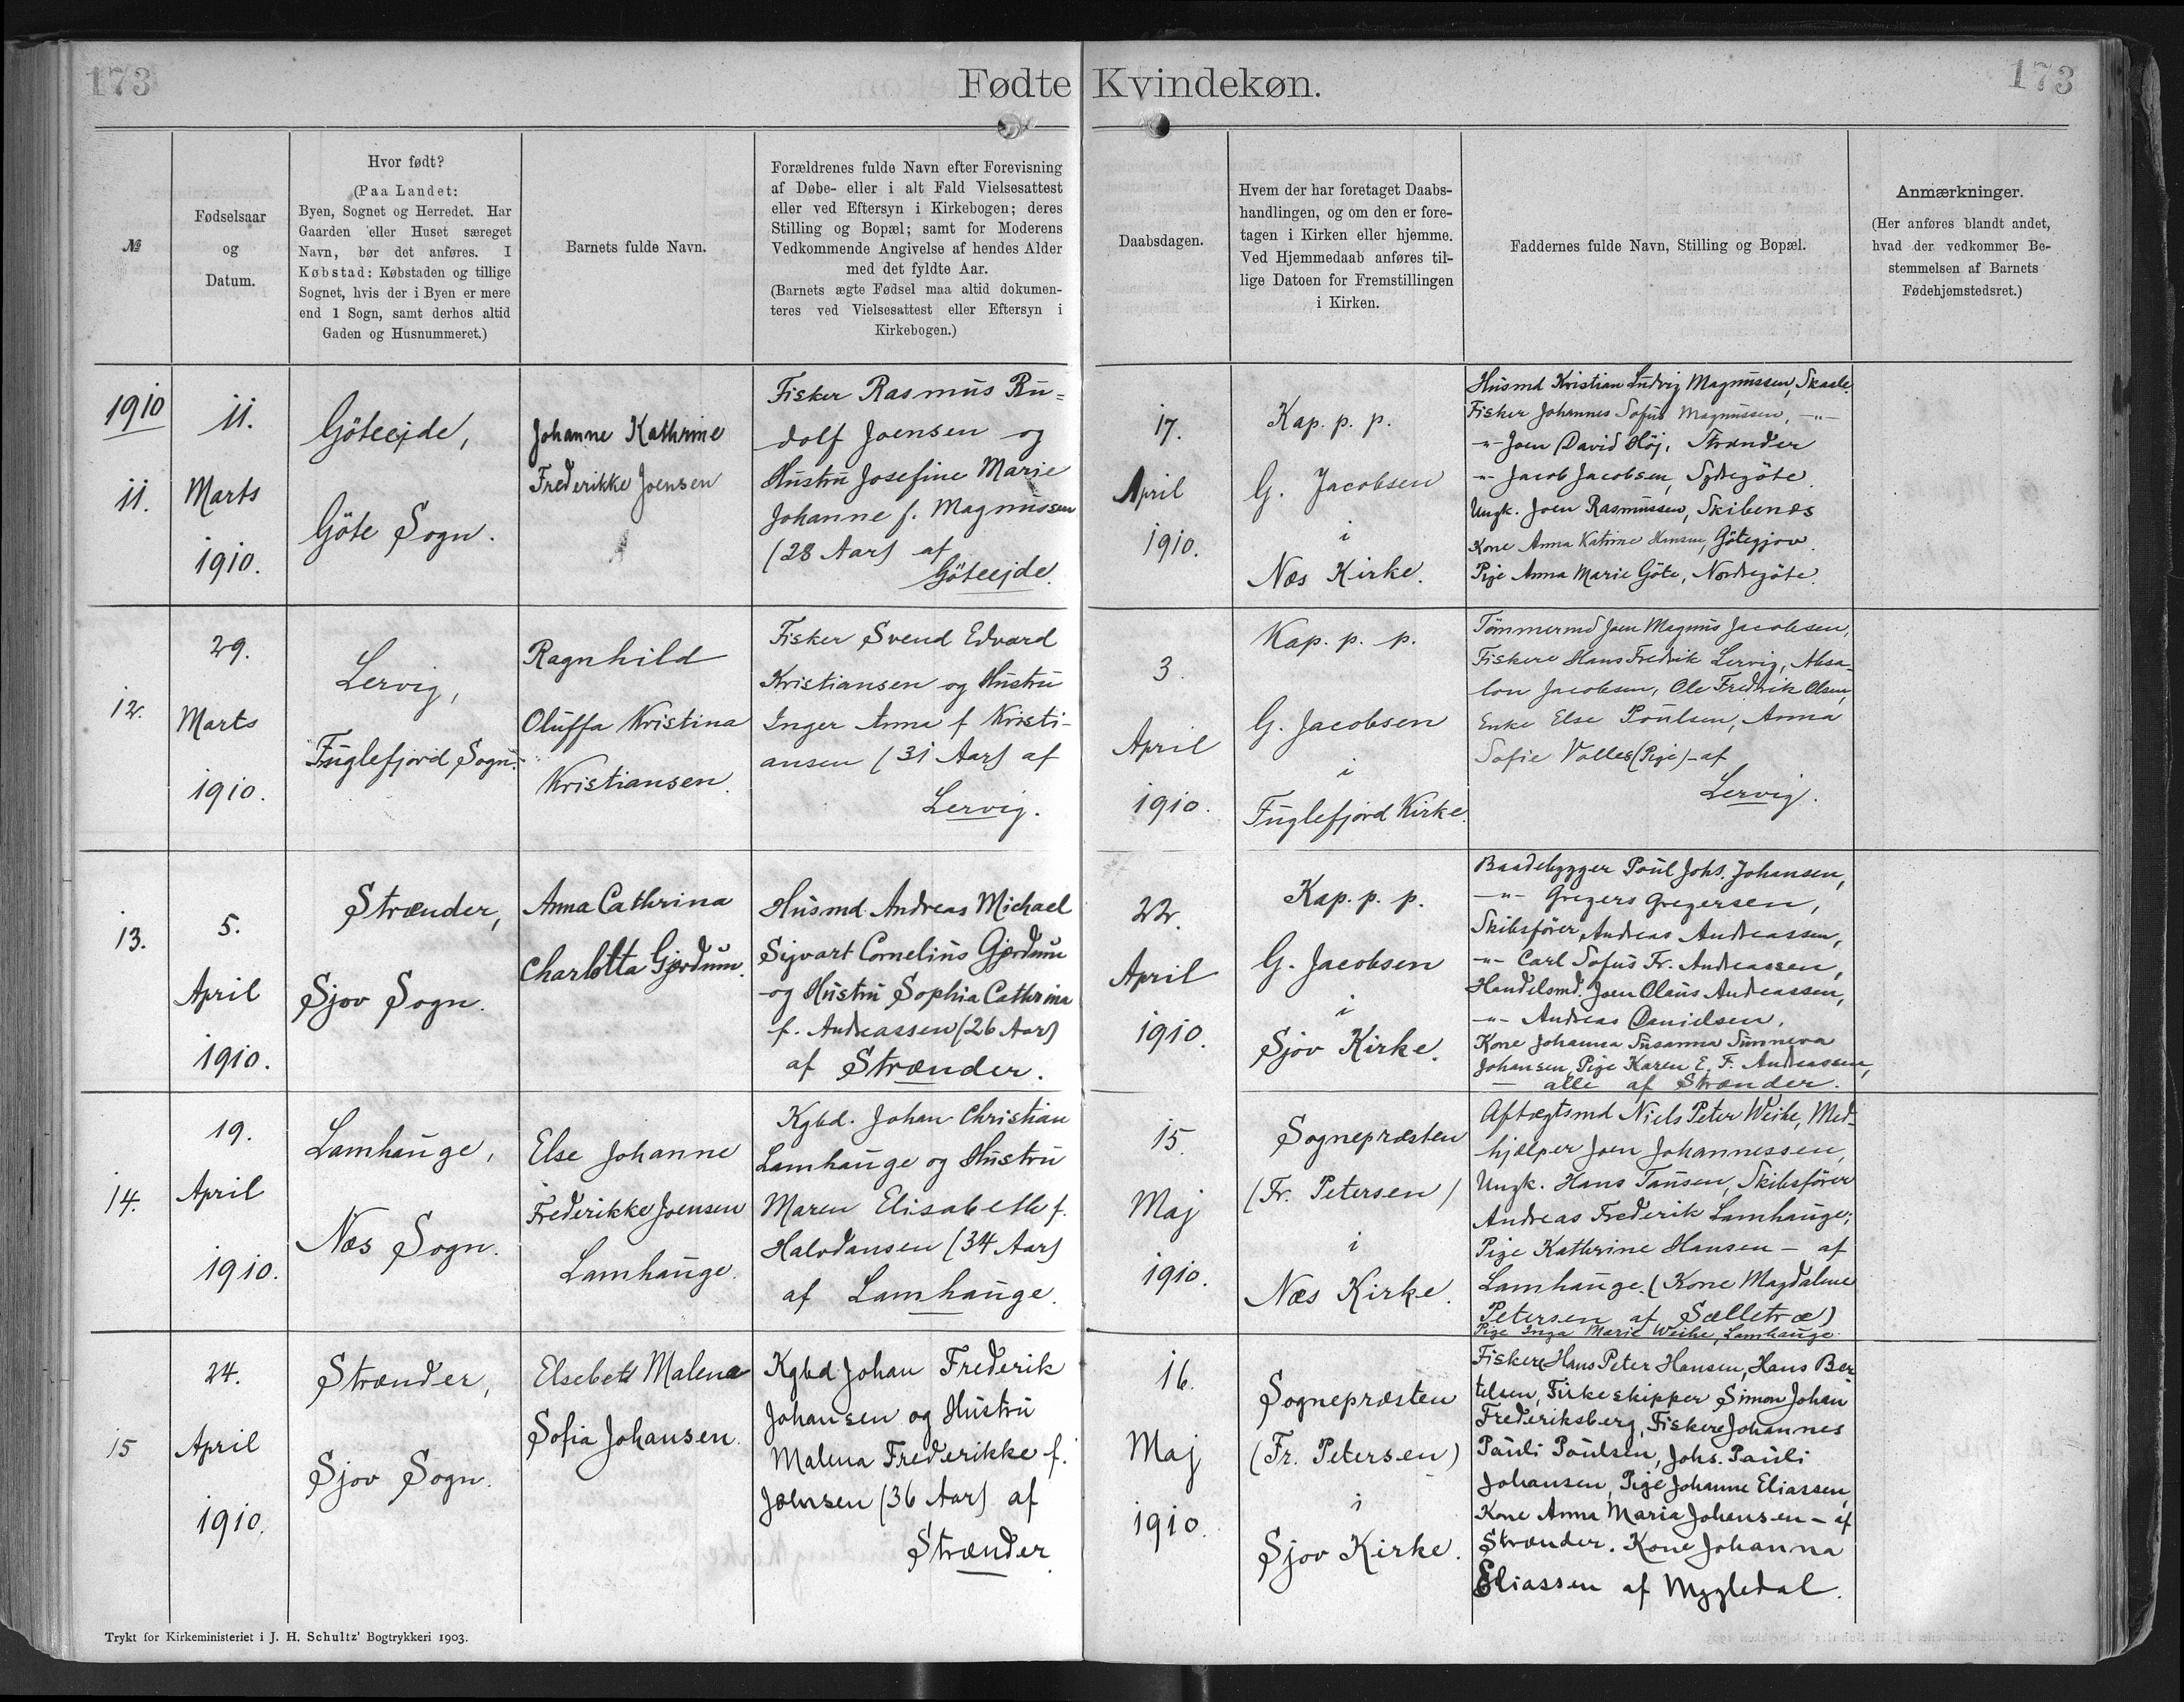 173
Fødte Kvindekøn.
173
№
Fødselsaar
og
Datum.
Hvor født?
(Paa Landet:
Byen, Sognet og Herredet. Har
Gaarden eller Huset særeget
Navn, bør det anføres. I
Købstad: Købstaden og tillige
Sognet, hvis der i Byen er mere
end 1 Sogn, samt derhos altid
Gaden og Husnummeret.)
Barnets fulde Navn.
Forældrenes fulde Navn efter Forevisning
af Døbe- eller i alt Fald Vielsesattest
eller ved Eftersyn i Kirkebogen; deres
Stilling og Bopæl; samt for Moderens
Vedkommende Angivelse af hendes Alder
med det fyldte Aar.
(Barnets ægte Fødsel maa altid dokumen-
teres ved Vielsesattest eller Eftersyn i
Kirkebogen.)
Daabsdagen.
Hvem der har foretaget Daabs-
handlingen, og om den er fore-
tagen i Kirken eller hjemme.
Ved Hjemmedaab anføres til-
lige Datoen for Fremstillingen
i Kirken.
Faddernes fulde Navn, Stilling og Bopæl.
Anmærkninger.
(Her anføres blandt andet,
hvad der vedkommer Be-
stemmelsen af Barnets
Fødehjemstedsret.)
1910
11.
11.
Marts
1910.
Göteejde,
Göte Sogn.
Johanne Kathrine
Frederikke Joensen
Fisker Rasmus Ru=
dolf Joensen og
Hustru Josefine Marie
Johanne f. Magnussen
(28 Aar) af
Göteejde.
17.
April
1910.
Kap. p. p.
G. Jacobsen
i
Nes Kirke.
Husmd Kristian Ludvig Magnussen, Skaale.
Fisker Johannes Sofus Magnussen, -"-
-"- Joen David Höj, Strænder
-"- Jacob Jacobsen, Sydregöte.
Ungk. Joen Rasmussen, Skibenæs
Kone Anna Katrine Hansen, Götegjov.
Pige Anna Marie Göte, Nordregöte.
12.
29.
Marts
1910.
Lervig,
Fuglefjord Sogn.
Ragnhild
Oluffa Kristina
Kristiansen.
Fisker Svend Edvard
Kristiansen og Hustru
Inger Anne f Kristi-
ansen (31 Aar) af
Lervig.
3.
April
1910.
Kap. p. p.
G. Jacobsen
i
Fuglefjord Kirke.
Tömmermd Joen Magnus Jacobsen,
Fiskere Hans Fredrik Lervig, Absa-
lon Jacobsen, Ole Fredrik Olsen,
Enke Else Poulsen, Anna
Sofie Volles (Pige) - af
Lervig.
13.
5.
April
1910.
Strænder,
Sjov Sogn.
Anna Cathrina
Charlotta Gjordum.
Husmd. Andreas Michael
Sigvart Cornelius Gjordum
og Hustru Sophia Cathrina
f. Andreassen (26 Aar)
af Strænder.
22.
April
1910.
Kap. p. p.
G. Jacobsen
i
Sjov Kirke.
Baadebygger Poul Johs. Johansen,
-"- Gregers Gregersen,
Skibsfører, Andreas Andreassen,
-"- Carl Sofus Fr. Andreassen,
Handelsmd. Joen Olaus Andreassen,
-"- Andreas Danielsen.
Kone Johanna Susanna Sunneva
Johansen, Pige Karen E. F. Andreassen,
— alle af Strænder.
14.
19.
April
1910.
Lamhauge,
Nes Sogn.
Else Johanne
Frederikke Joensen
Lamhauge.
Kgbd. Johan Christian
Lamhauge og Hustru
Maren Elisabeth f.
Halvdansen (34 Aar)
af Lamhauge.
15.
Maj
1910.
Sognepræsten
(Fr. Petersen)
i
Nes Kirke.
Aftægtsmd Niels Peter Weihe, Med-
hjælper Joen Johannessen,
Ungk. Hans Tausen, Skibsfører
Andreas Frederik Lamhauge;
Pige Kathrine Hansen - af
Lamhauge. (Kone Magdalene
Petersen af Sælletræ)
Pige Inga Marie Weihe, Lamhauge.
15
24.
April
1910.
Strænder,
Sjov Sogn.
Elsebeth Malena
Sofia Johansen.
Kgbd Johan Frederik
Johansen og Hustru
Malena Frederikke f.
Joensen (36 Aar) af
Strænder
16.
Maj
1910.
Sognepræsten
(Fr. Petersen)
i
Sjov Kirke.
Fiskere Hans Peter Hansen, Hans Ber
telsen, Fiskeskipper Simon Johan
Frederiksberg, Fiskere Johannes
Pauli Poulsen, Johs. Pauli
Johansen, Pige Johanne Eliassen,
Kone Anna Maria Johansen - af
Strænder. Kone Johanna
Eliassen af Mygledal.
Trykt for Kirkeministeriet i J. H. Schultz' Bogtrykkeri 1903.